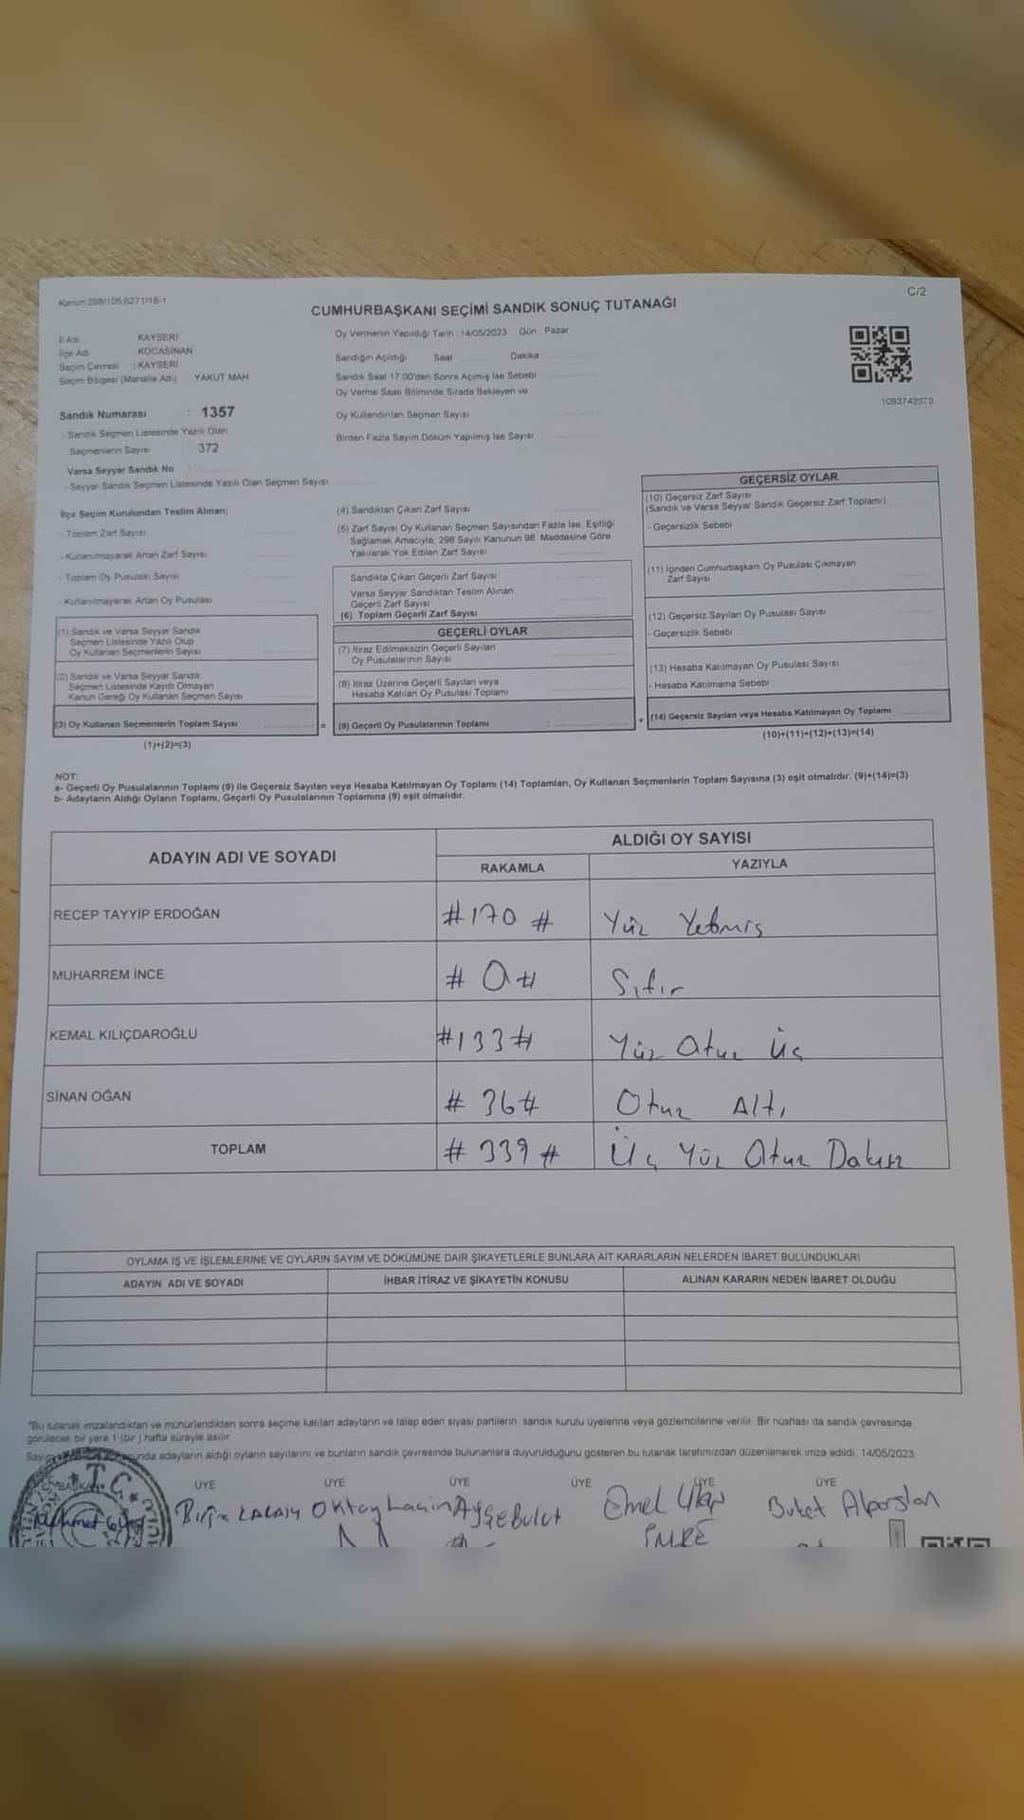 Kanun:298/105,6271/16-1
C/2
CUMHURBAŞKANI SEÇİMİ SANDIK SONUÇ TUTANAĞI
İl Adı : KAYSERİ
İlçe Adı : KOCASİNAN
Seçim Çevresi : KAYSERİ
Seçim Bölgesi (Mahalle Adı) YAKUT MAH
Sandık Numarası : 1357
- Sandık Seçmen Listesinde Yazılı Olan
Seçmenlerin Sayısı 372
Varsa Seyyar Sandık No
- Seyyar Sandık Seçmen Listesinde Yazılı Olan Seçmen Sayısı
Oy Vermenin Yapıldığı Tarih : 14/05/2023 Gün : Pazar
Sandığın Açıldığı Saat Dakika
Sandık Saat 17:00'den Sonra Açılmış İse Sebebi
Oy Verme Saati Bitiminde Sırada Bekleyen ve
Oy Kullandırılan Seçmen Sayısı
Birden Fazla Sayım Döküm Yapılmış İse Sayısı
1093743370
İlçe Seçim Kurulundan Teslim Alınan;
- Toplam Zarf Sayısı
- Kullanılmayarak Artan Zarf Sayısı
- Toplam Oy Pusulası Sayısı
- Kullanılmayarak Artan Oy Pusulası
(1) Sandık ve Varsa Seyyar Sandık
Seçmen Listesinde Yazılı Olup
Oy Kullanan Seçmenlerin Sayısı
(2) Sandık ve Varsa Seyyar Sandık
Seçmen Listesinde Kayıtlı Olmayan
Kanun Gereği Oy Kullanan Seçmen Sayısı
(3) Oy Kullanan Seçmenlerin Toplam Sayısı
(1)+(2)=(3)
(4) Sandıktan Çıkan Zarf Sayısı
(5) Zarf Sayısı Oy Kullanan Seçmen Sayısından Fazla İse, Eşitliği
Sağlamak Amacıyla, 298 Sayılı Kanunun 98. Maddesine Göre
Yakılarak Yok Edilen Zarf Sayısı
Sandıkta Çıkan Geçerli Zarf Sayısı
Varsa Seyyar Sandıktan Teslim Alınan
Geçerli Zarf Sayısı
(6) Toplam Geçerli Zarf Sayısı
GEÇERLİ OYLAR
(7) İtiraz Edilmeksizin Geçerli Sayılan
Oy Pusulalarının Sayısı
(8) İtiraz Üzerine Geçerli Sayılan veya
Hesaba Katılan Oy Pusulası Toplamı
= (9) Geçerli Oy Pusulalarının Toplamı
GEÇERSİZ OYLAR
(10) Geçersiz Zarf Sayısı
(Sandık ve Varsa Seyyar Sandık Geçersiz Zarf Toplamı)
- Geçersizlik Sebebi
(11) İçinden Cumhurbaşkanı Oy Pusulası Çıkmayan
Zarf Sayısı
(12) Geçersiz Sayılan Oy Pusulası Sayısı
- Geçersizlik Sebebi
(13) Hesaba Katılmayan Oy Pusulası Sayısı
- Hesaba Katılmama Sebebi
+ (14) Geçersiz Sayılan veya Hesaba Katılmayan Oy Toplamı
(10)+(11)+(12)+(13)=(14)
NOT:
a- Geçerli Oy Pusulalarının Toplamı (9) ile Geçersiz Sayılan veya Hesaba Katılmayan Oy Toplamı (14) Toplamları, Oy Kullanan Seçmenlerin Toplam Sayısına (3) eşit olmalıdır. (9)+(14)=(3)
b- Adayların Aldığı Oyların Toplamı, Geçerli Oy Pusulalarının Toplamına (9) eşit olmalıdır.
ADAYIN ADI VE SOYADI
ALDIĞI OY SAYISI
RAKAMLA YAZIYLA
RECEP TAYYİP ERDOĞAN #170# Yüz Yetmiş
MUHARREM İNCE #0# Sıfır
KEMAL KILIÇDAROĞLU #133# Yüz Otuz Üç
SİNAN OĞAN #36# Otuz Altı
TOPLAM #339# Üç Yüz Otuz Dokuz
OYLAMA İŞ VE İŞLEMLERİNE VE OYLARIN SAYIM VE DÖKÜMÜNE DAİR ŞİKAYETLERLE BUNLARA AİT KARARLARIN NELERDEN İBARET BULUNDUKLARI
ADAYIN ADI VE SOYADI İHBAR İTİRAZ VE ŞİKAYETİN KONUSU ALINAN KARARIN NEDEN İBARET OLDUĞU
*Bu tutanak imzalandıktan ve mühürlendikten sonra seçime katılan adayların ve talep eden siyasi partilerin sandık kurulu üyelerine veya gözlemcilerine verilir. Bir nüshası da sandık çevresinde
görülecek bir yere 1 (bir) hafta süreyle asılır.
adayların aldığı oyların sayılarını ve bunların sandık çevresinde bulunanlara duyurulduğunu gösteren bu tutanak tarafımızdan düzenlenerek imza edildi. 14/05/2023
T.C.
ÜYE ÜYE ÜYE ÜYE ÜYE ÜYE
Oktay Laçin Ayşe Bulut Emel Buket Alparslan
EMRE